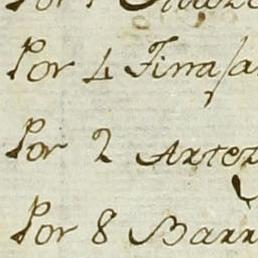 Por
Por 4 Tinaja
Por 2 Artez
Por 8 Barr